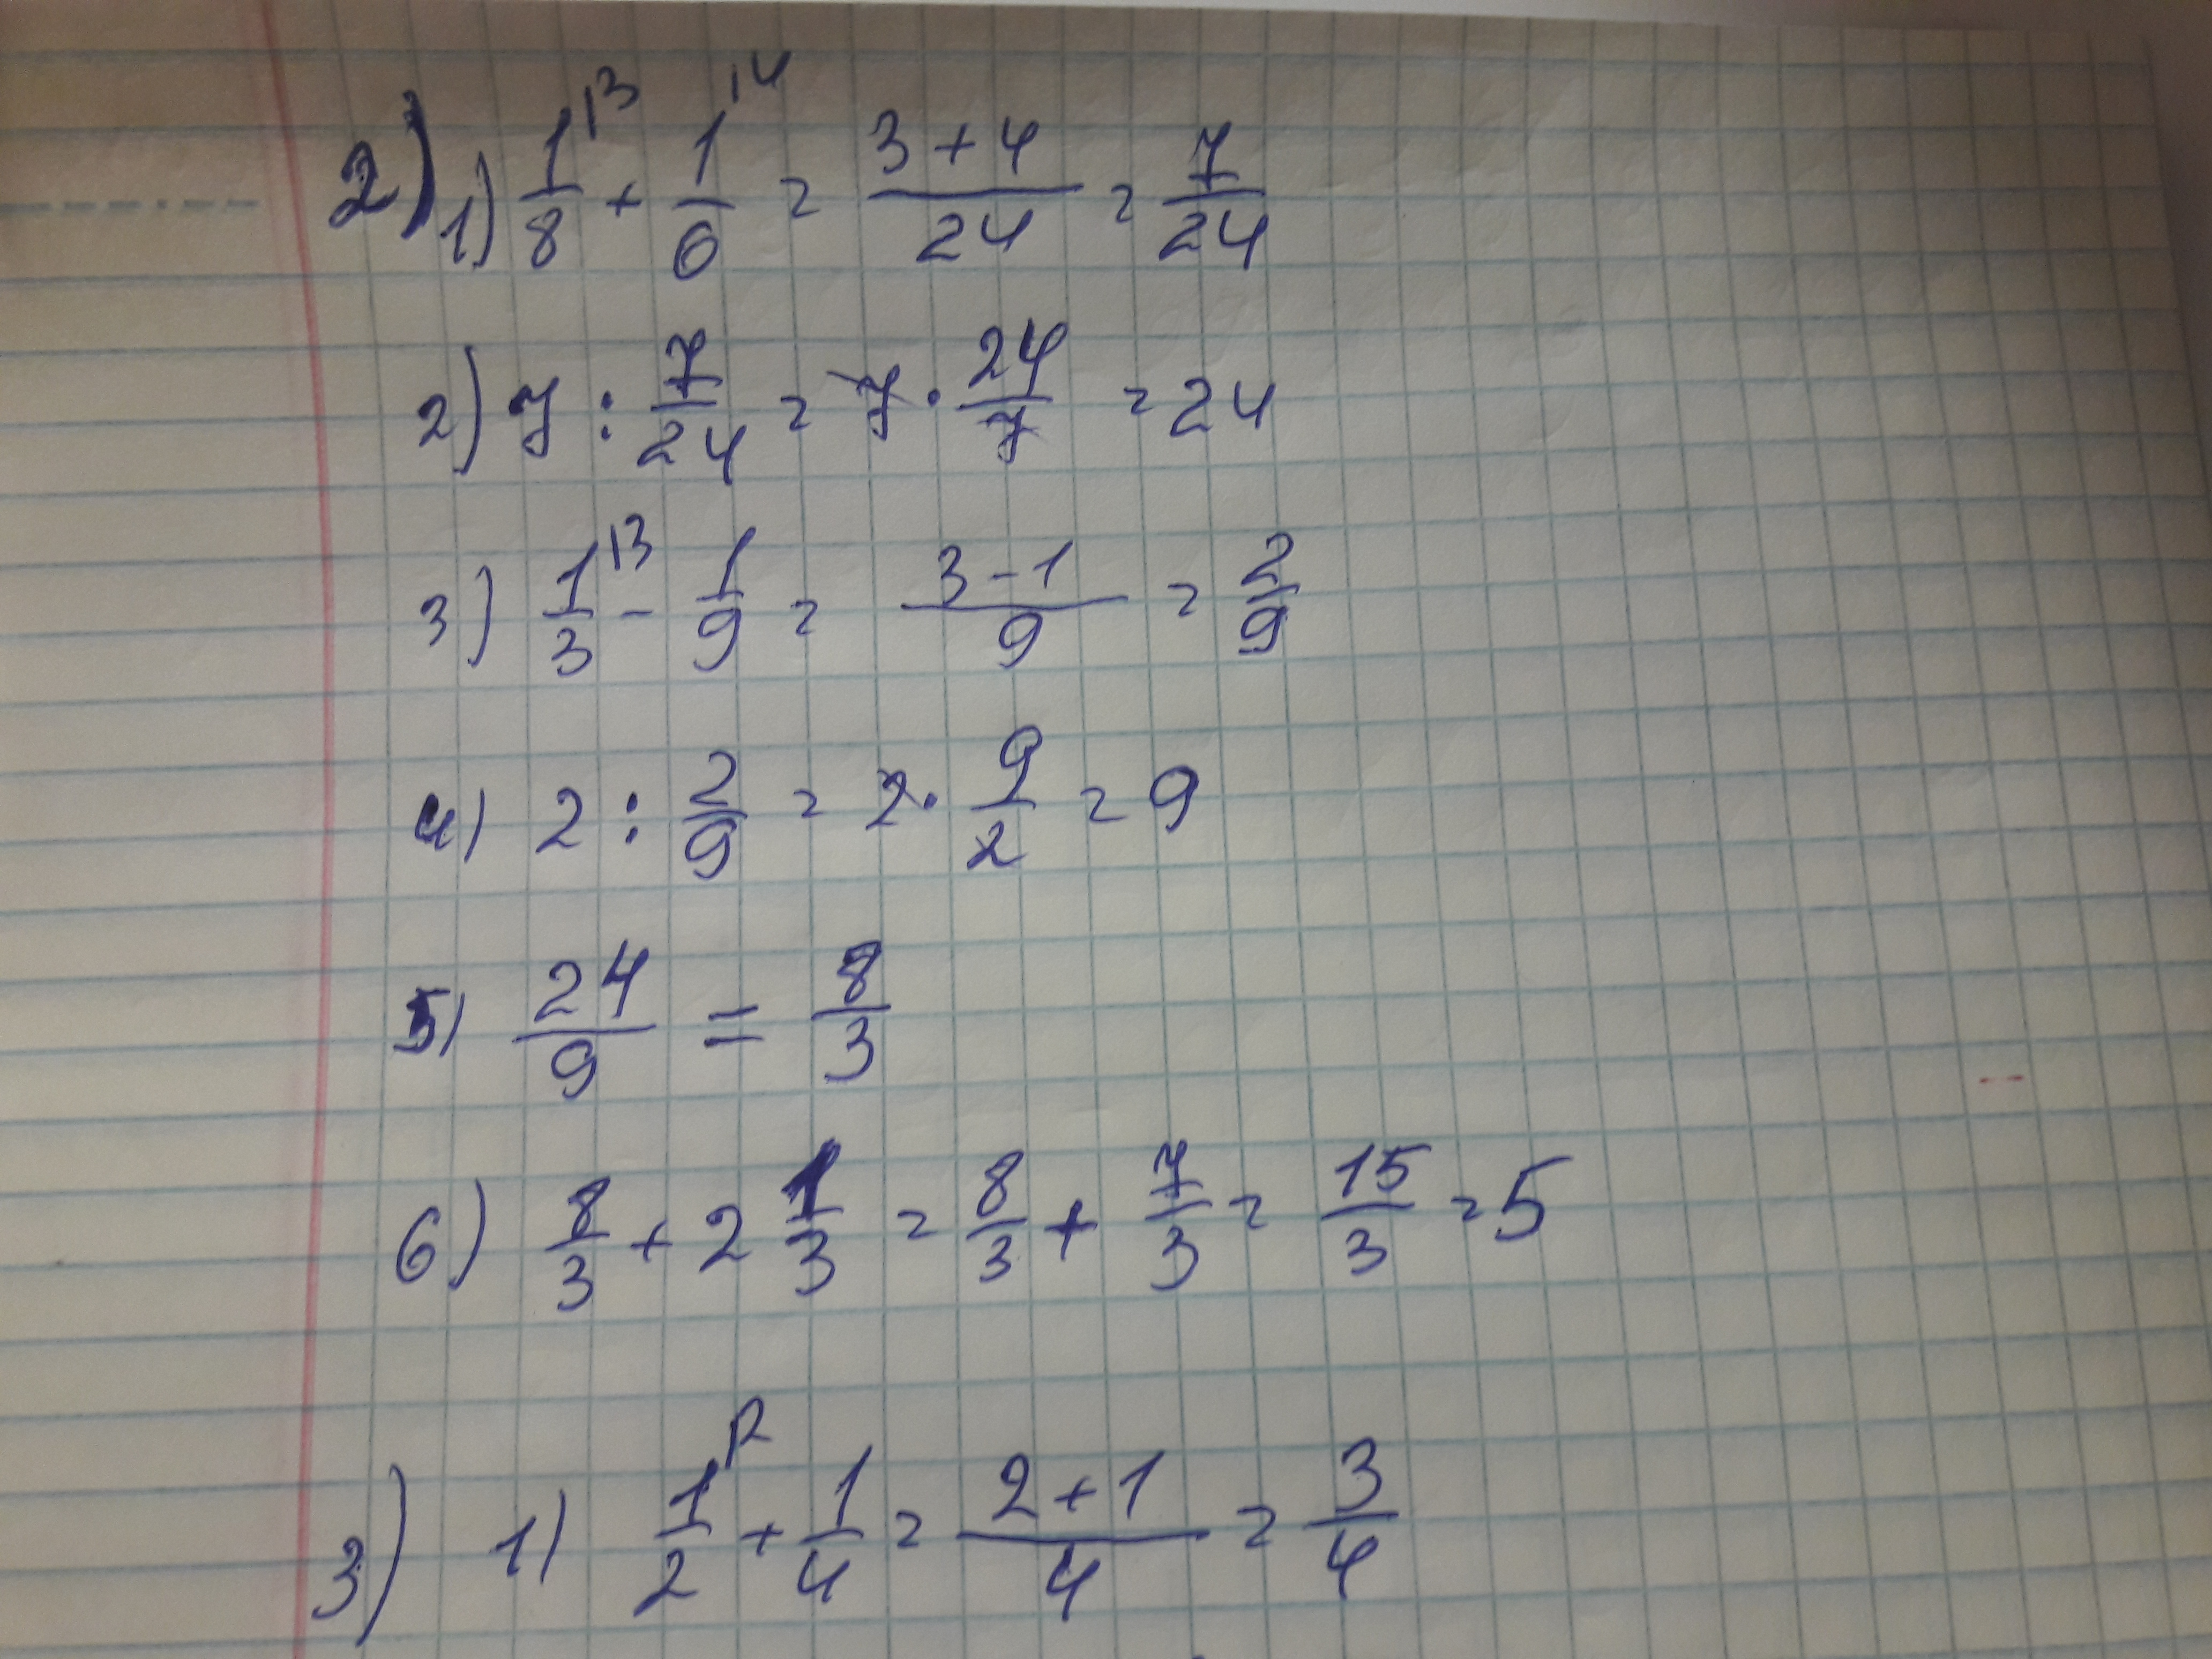 2) 1) 1/8 |3 + 1/6 |4 = (3+4)/24 = 7/24
2) 7 : 7/24 = 7 · 24/7 = 24
3) 1/3 |3 - 1/9 = (3-1)/9 = 2/9
4) 2 : 2/9 = 2 · 9/2 = 9
5) 24/9 = 8/3
6) 8/3 + 2 1/3 = 8/3 + 7/3 = 15/3 = 5
3) 1) 1/2 |2 + 1/4 = (2+1)/4 = 3/4